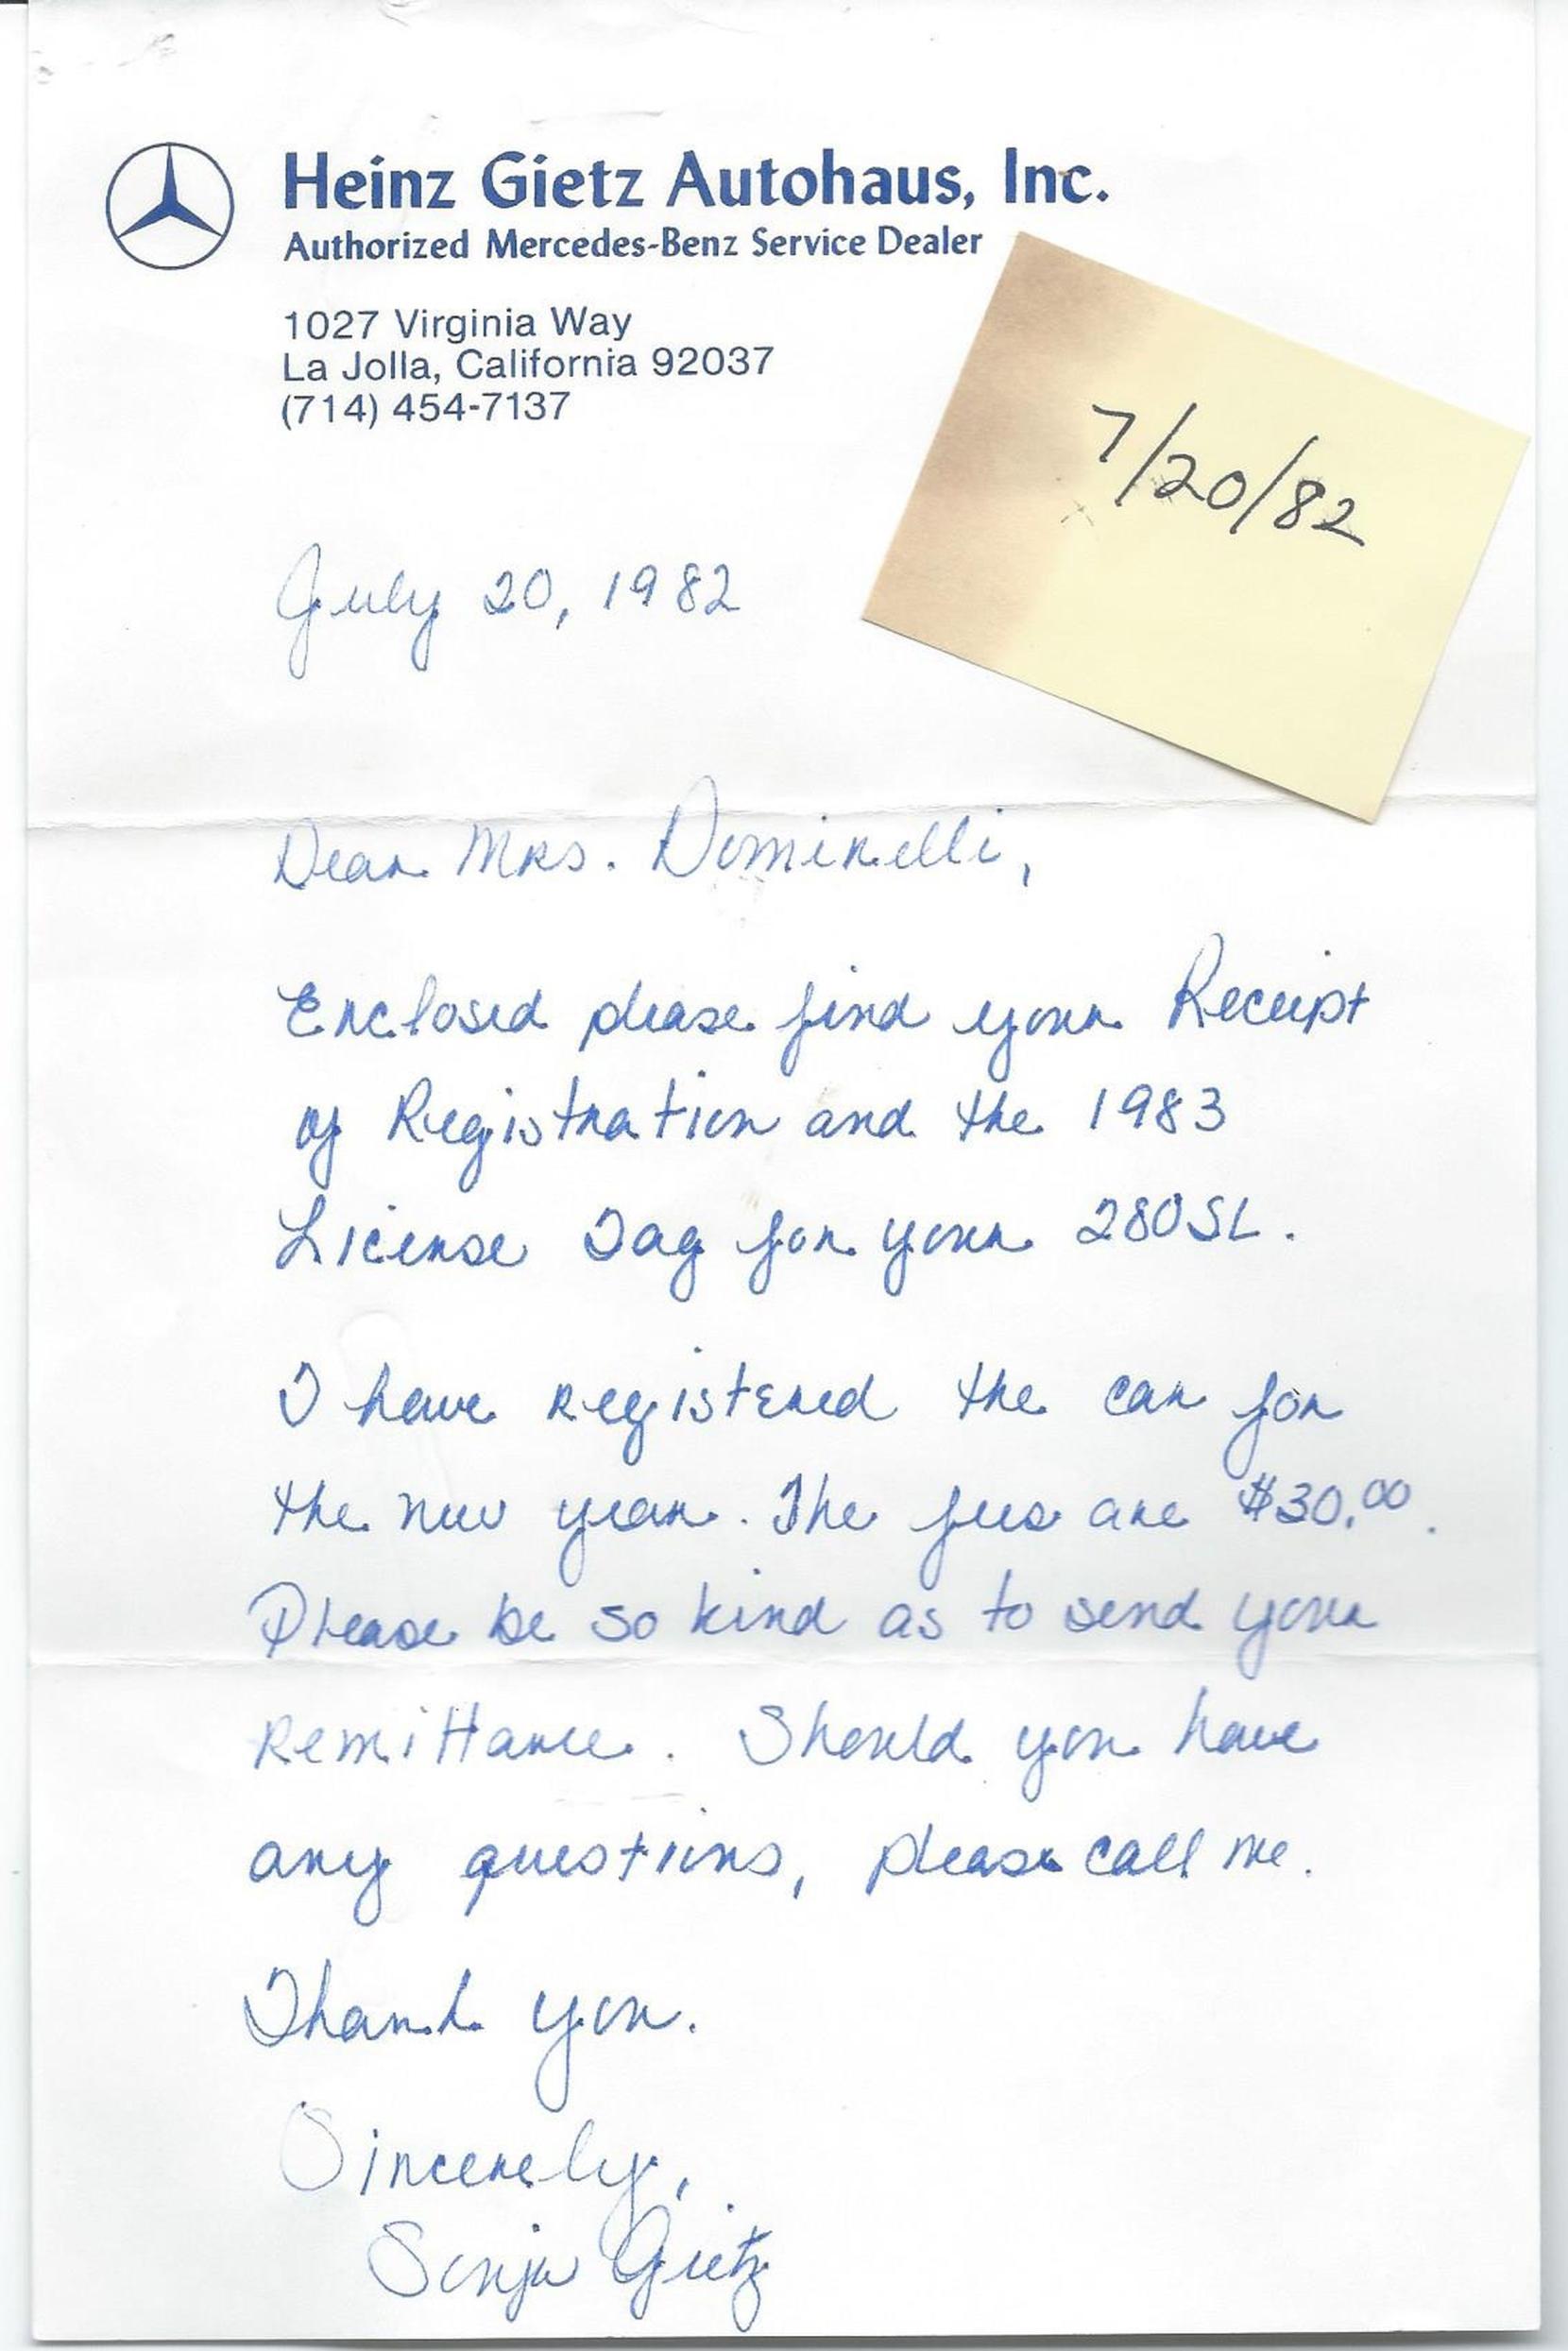 Heinz Gietz Autohaus, Inc.
Authorized Mercedes-Benz Service Dealer
1027 Virginia Way
La Jolla, California 92037
(714) 454-7137
7/20/82
July 20, 1982
Dear Mrs. Dominelli,
Enclosed please find your Receipt
of Registration and the 1983
License Tag for your 280SL.
I have registered the car for
the new year. The fees are $30.00.
Please be so kind as to send your
remittance. Should you have
any questions, please call me.
Thank you.
Sincerely,
Sonja Gietz